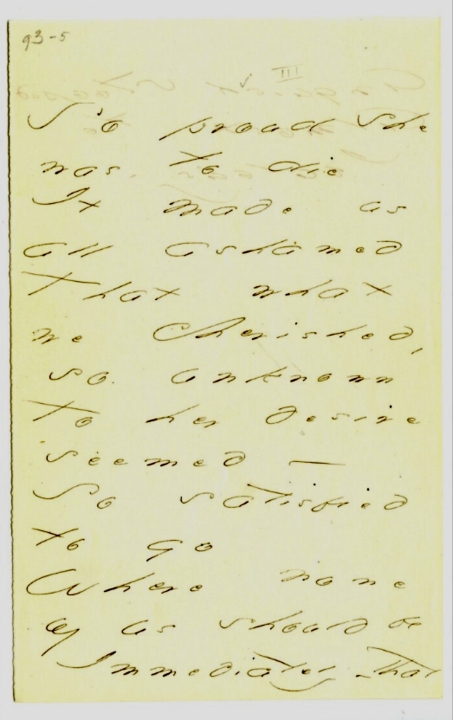 93-5
III
So proud she
was to die
It made us
all ashamed
That what
we cherished,
so unknown
To her desire
seemed —
So satisfied
to go
Where none
of us should be
Immediately - That